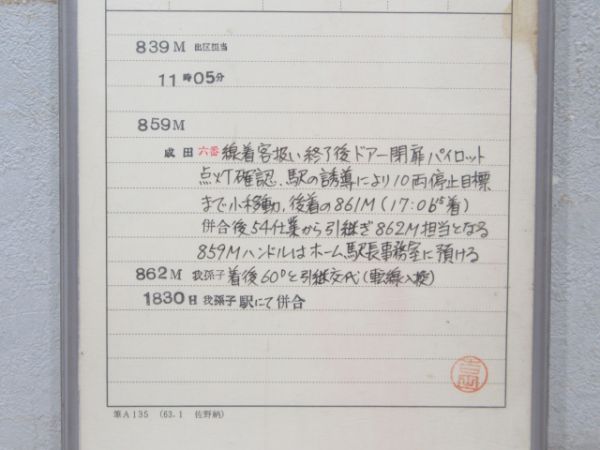 839M 出区担当
11時05分
859M
成田 六番線着客扱い終了後ドアー閉扉パイロット
点灯確認、駅の誘導により10両停止目標
まで小移動、後着の861M(17:06着)
併合後54仕業から引継ぎ862M担当となる
859Mハンドルはホーム駅長事務室に預ける
862M 我孫子着後60と引継交代(転線入換)
1830M 我孫子駅にて併合
運A135 (63.1 佐野納)